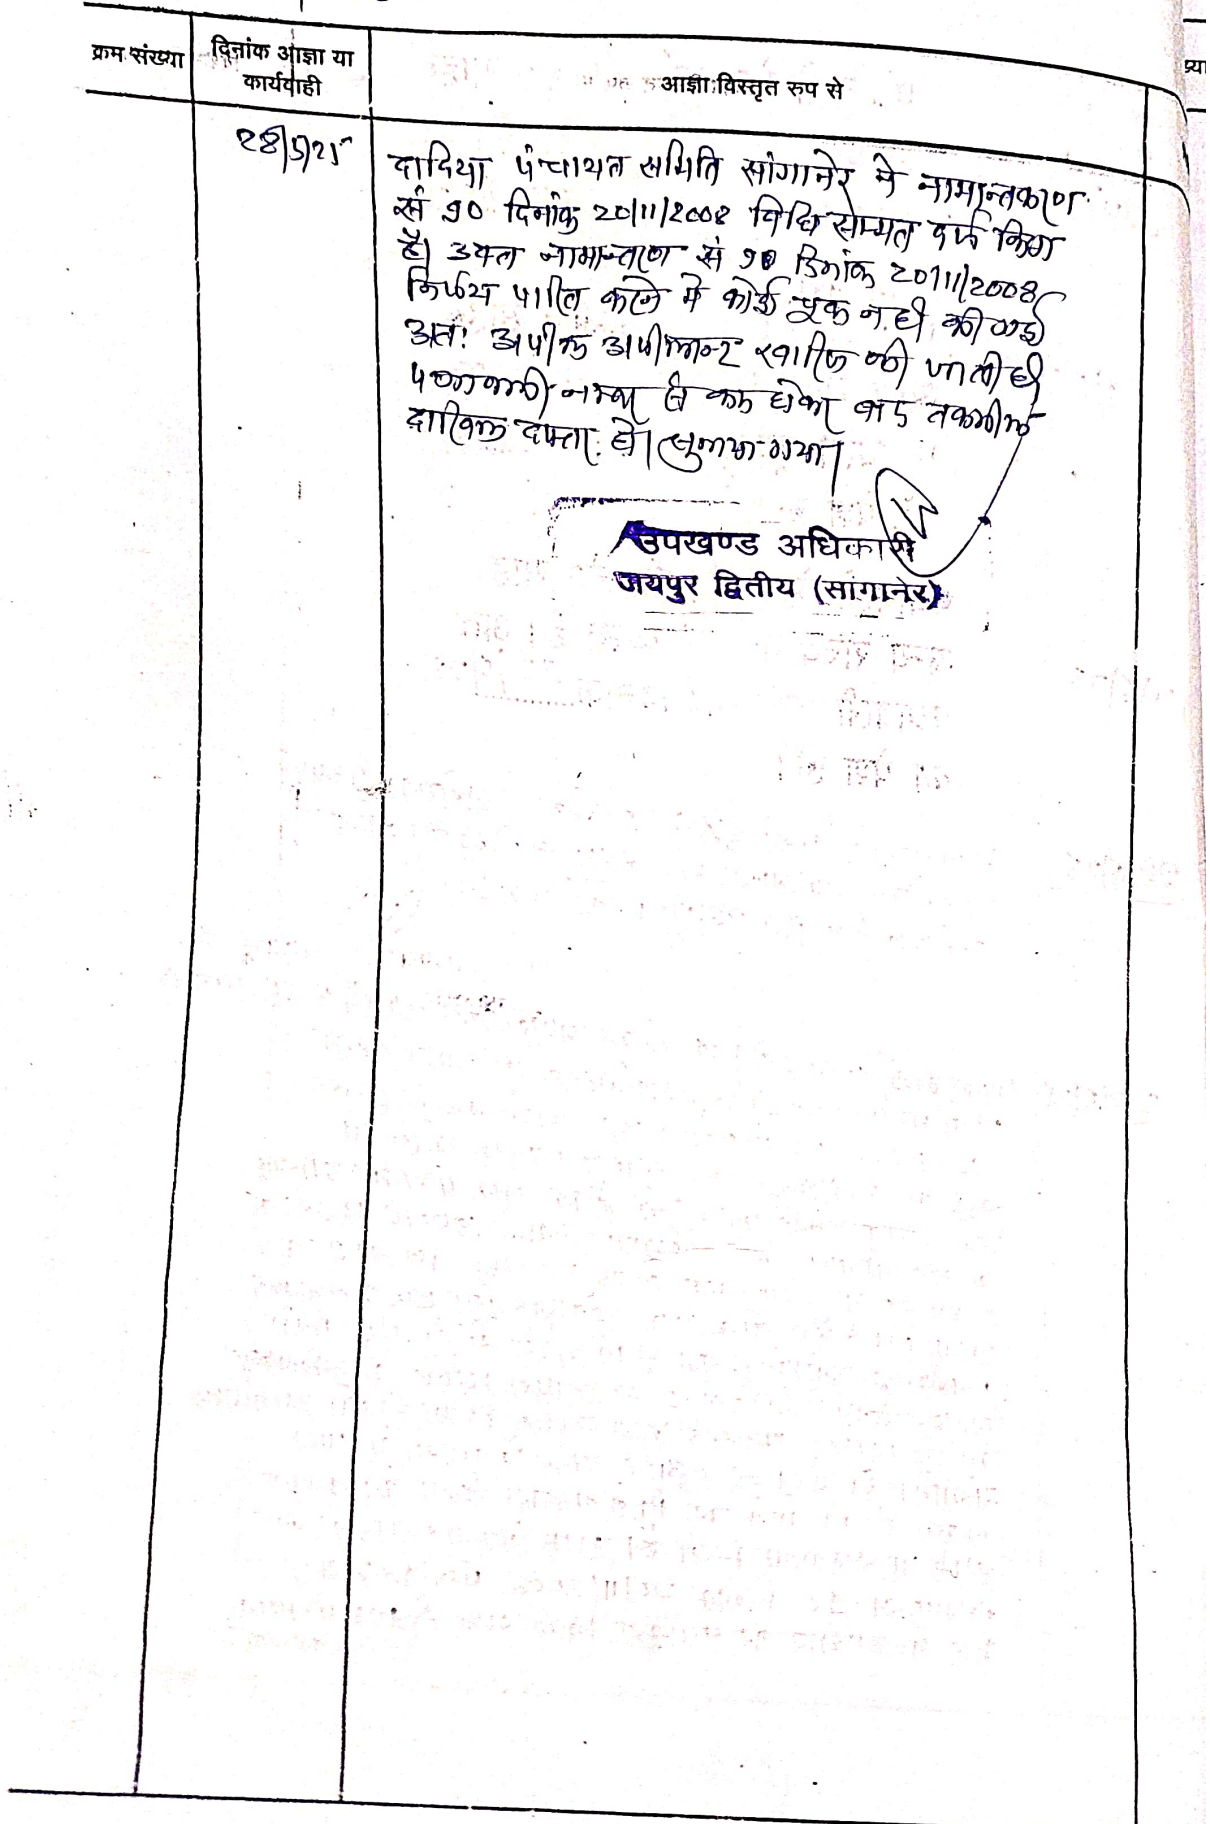 क्रम संख्या
दिनांक आज्ञा या
कार्यवाही
आज्ञा विस्तृत रुप से
28/5/25
दादिया पंचायत समिति सांगानेर ने नामान्तकरण
सं 90 दिनांक 20/11/2008 विधि सम्मत दर्ज किया
है। उक्त नामान्तरण सं 90 दिनांक 20/11/2008
निर्णय पारित करने में कोई चूक नही की गई
अतः अपील अपीलान्ट खारिज की जाती है।
पत्रावली नम्बर से कम होकर बाद तकमील
दाखिल दफ्तर हो। सुनाया गया।
उपखण्ड अधिकारी
जयपुर द्वितीय (सांगानेर)